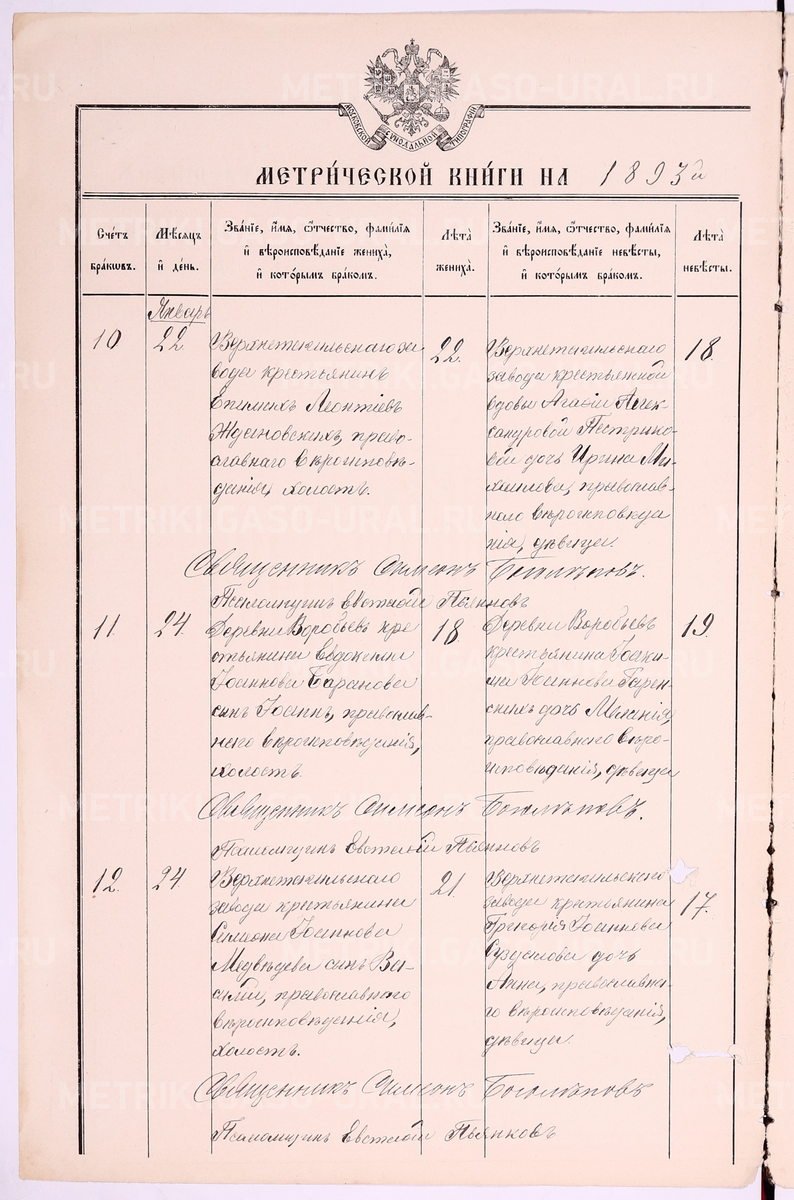 МОСКОВСКОЙ СѴНОДАЛЬНОЙ ТИПОГРАФІИ
МЕТРИ́ЧЕСКОЙ КНИ́ГИ НА 1893й
Сче́тъ бра́ковъ.
Мѣ́сяцъ и́ де́нь.
Зва́ніе, и́мя, ѻ҆́тчество, фами́лія и́ вѣроисповѣ́даніе жениха̀, и́ кото́рымъ бра́комъ.
Лѣ́та жениха̀.
Зва́ніе, и́мя, ѻ҆́тчество, фами́лія и́ вѣроисповѣ́даніе невѣ́сты, и́ кото́рымъ бра́комъ.
Лѣ́та невѣ́сты.
Январь
10
22
Верхнетагильскаго за
вода крестьянинъ
Епимихъ Леонтіевъ
Ждановскихъ, право-
славнаго вѣроисповѣ-
данія, холостъ.
22
Верхнетагильскаго
завода крестьянской
вдовы Агаѳіи Алек-
сандровой Пестрико-
вой дочь Ирина Ми-
хаилова, православ-
наго вѣроисповѣда
нія, дѣвица.
18
Священникъ Симеонъ Боголѣповъ.
Псаломщикъ Евстаѳій Пьянковъ
11
24
Деревни Воробьевъ кре
стьянина Евдокима
Іоаннова Баранова
сынъ Іоаннъ, православ-
наго вѣроисповѣданія,
холостъ.
18
Деревни Воробьевъ
крестьянина Іоаки-
ма Іоаннова
дочь Меланія
православнаго вѣро-
исповѣданія, дѣвица
19
Священникъ Симеонъ Боголѣповъ.
Псаломщикъ Евстаѳій Пьянковъ
12
24
Верхнетагильскаго
завода крестьянина
Симеона Іоаннова
Медвѣдева сынъ Ва-
силій, православнаго
вѣроисповѣданія,
холостъ.
21
Верхнетагильскаго
завода крестьянина
Григорія Іоаннова
Суздалова дочь
Анна, православна-
го вѣроисповѣданія,
дѣвица.
17.
Священникъ Симеонъ Боголѣповъ
Псаломщикъ Евстаѳій Пьянковъ
METRIKI.GASO-URAL.RU